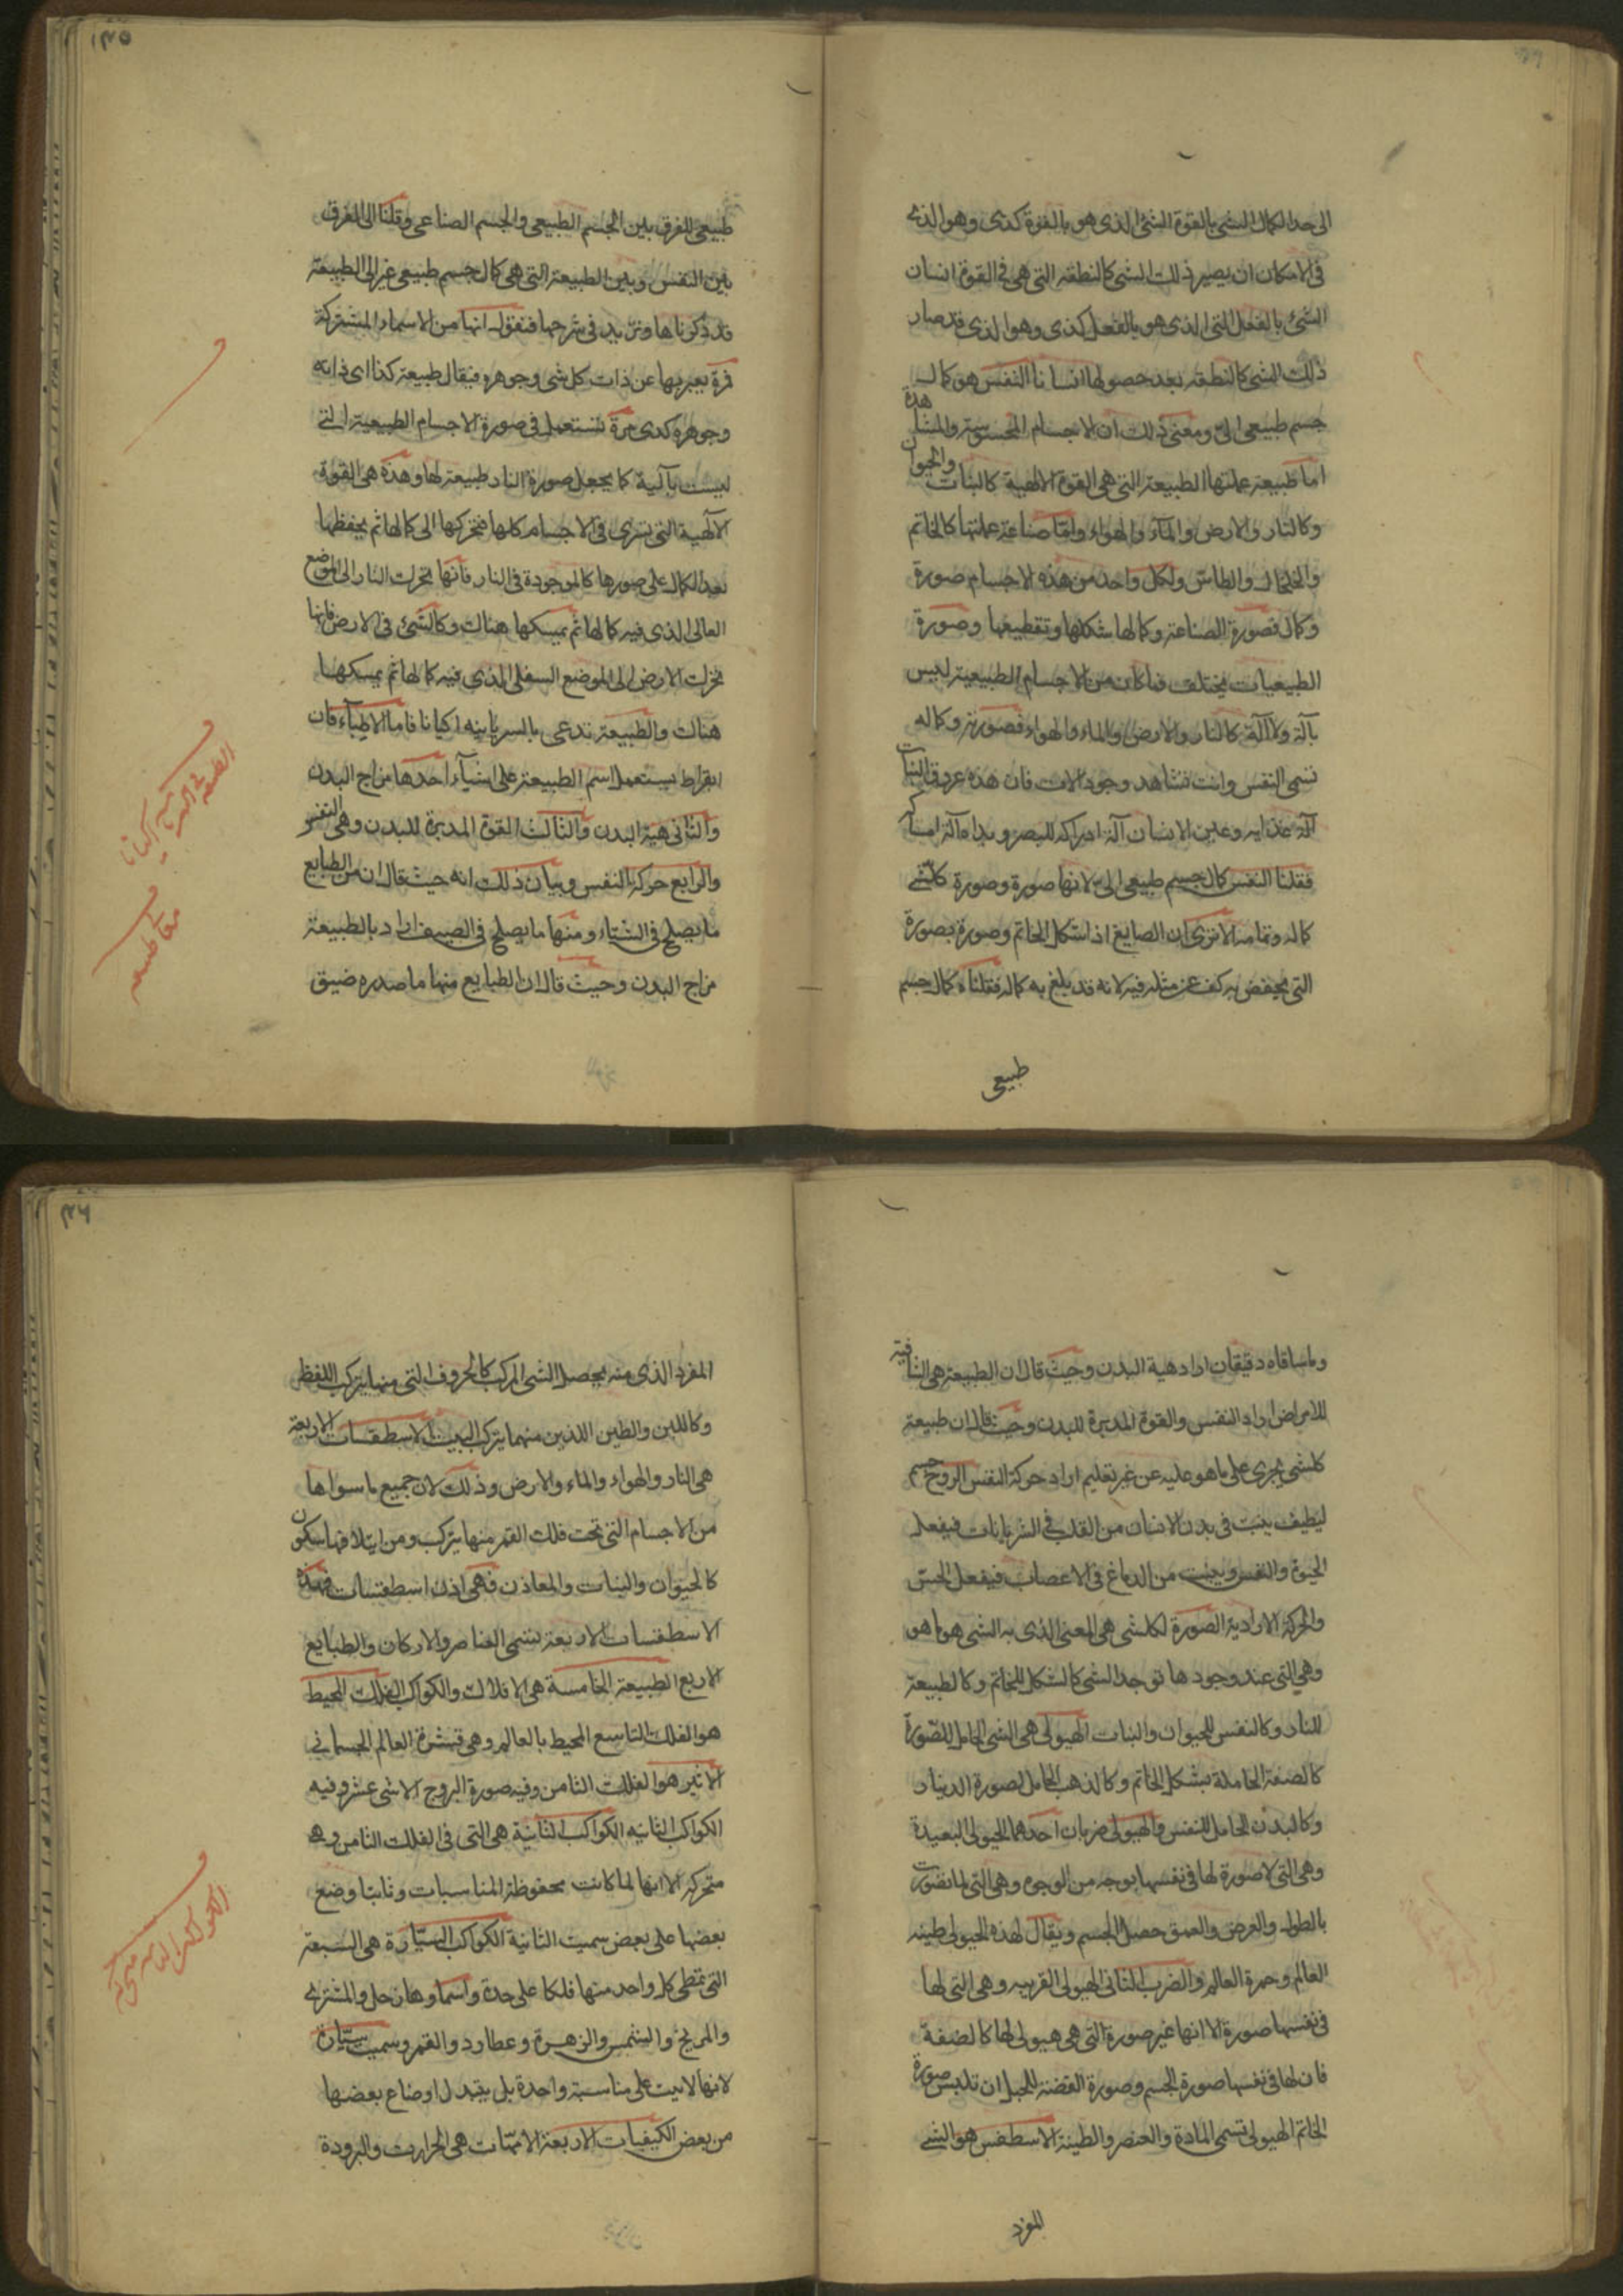 الى حد الكمال الشى بالقوة الشئ الذى هو بالقوة كذى وهو الذى
فى الامكان ان يصير ذلك الشى كالنطفه التى هى فى القوة انسان
الشئ بالفعل التى الذى هو بالفعل كذى وهو الذى قد صار
ذلك الشى كالنطفه بعد حصولها انسانا النفس هو كمال
جسم طبيعى الىّ ومعنى ذلك ان الاجسام المحسوسة والمشاهدة
اما طبيعته علتها الطبيعة التى هى القوة الالهية كالنبات والحيوان
وكالنار والارض والمآء والهواء واما صناعته علتها كالخاتم
والخلخال والطاس ولكل واحد من هذه الاجسام صورة
وكمال فصورة الصناعة وكمالها شكلها وتقطيعها وصورة
الطبيعيات يختلف فما كان من الاجسام الطبيعية ليس
بآلة ولا آلة كالنار والارض والماء والهواء فصورته وكماله
تسمى النفس وانت تشاهد وجود الات فان هذه عروق النبات
آلة غذايه وعين الانسان آلة ادراكه للبصر ويداه آلة امساكه
فقلنا النفس كمال جسم طبيعى الىّ لانها صورة وصورة كلشى
كماله وتمامه الا ترى ان الصايغ اذا شكل الخاتم وصوره بصورة
التى يخفض به كف عن مثله فيه لانه قد بلغ به كماله فقلناه كمال جسم
طبيعى
١٣٥
طبيعى للفرق بين الجسم الطبيعى والجسم الصناعى وقلنا الى للفرق
بين النفس وبين الطبيعة التى هى كمال جسم طبيعى غير الى الطبيعة
قد ذكرناها ونزيد فى شرحها فنقول انها من الاسماء المشتركة
فمرة يعبر بها عن ذات كل شى وجوهره فيقال طبيعة كذا اى ذاته
وجوهره كدى مرة تستعمل فى صورة الاجسام الطبيعية التى
ليست بآلية كما يجعل صورة النار طبيعة لها وهذه هى القوة
الآلهية التى تسرى فى الاجسام كلها فتحركها الى كمالها ثم يحفظها
بعد الكمال على صورها كالموجودة فى النار فانها تحرك النار الى الموضع
العالى الذى فيه كمالها ثم يمسكها هناك وكالشئ فى الارض فانها
تحرك الارض الى الموضع السفلى الذى فيه كمالها ثم يمسكها
هناك والطبيعة تدعى بالسريانيه اكيانا فاما الاطبآء فان
ابقراط يستعمل اسم الطبيعة على اشيآء احدها مزاج البدن
والثانى هية البدن والثالث القوة المدبرة للبدن وهى النفس
والرابع حركة النفس وبيان ذلك انه حيث قال ان من الطبايع
ما يصلح فى الشتاء ومنها ما يصلح فى الصيف اراد بالطبيعة
مزاج البدن وحيث قال ان الطبايع منها ما صدره ضيق
وساقاه دقيقان اراد هية البدن وحيث قال ان الطبيعة هى الشافية
للامراض اراد النفس والقوة المدبرة للبدن وحيث قال ان طبيعة
كلشى يجرى على ما هو عليه عن غير تعليم اراد حركة النفس الروح جسم
لطيف ينبث فى بدن الانسان من القلب فى الشريانات فيفعل
الحيوة والنفس وينبث من الدماغ فى الاعصاب فيفعل الحس
والحركة الارادية الصورة لكلشى هى المعنى الذى به الشى هو ما هو
وهى التى عند وجودها توجد الشى كالشكل للخاتم وكالطبيعة
للنار وكالنفس للحيوان والنبات الهيولى هى الشى الحامل للصورة
كالصنعة الحاملة بشكل الخاتم وكالذهب الحامل لصورة الدينار
وكالبدن الحامل للنفس والهيولى ضربان احدهما الهيولى البعيدة
وهى التى لا صورة لها فى نفسها بوجه من الوجوه وهى التى لما تصورت
بالطول والعرض والعمق حصل الجسم ويقال لهذه الهيولى طينه
العالم وخمرة العالم والضرب الثانى الهيولى القريبه وهى التى لها
فى نفسها صورة الا انها غير صورة التى هى هيولى لها كالصنفة
فان لها فى نفسها صورة الجسم وصورة الفضة للجبل ان تلبس صورة
الخاتم الهيولى تسمى المادة والعنصر والطينة الاسطقس هو الشى
المفرد
٣٦
المفرد الذى منه يحصل الشى المركب كالحروف التى منها يتركب اللفظ
وكاللبن والطين الذين منهما يتركب البيت الاسطقسات الاربعة
هى النار والهواء والماء والارض وذلك لان جميع ما سواها
من الاجسام التى تحت فلك القمر منها يتركب ومن ايتلافها سكون
كالحيوان والنبات والمعادن فهى اذن اسطقسات فهذه
الاسطقسات الاربعة تسمى العناصر والاركان والطبايع
الاربع الطبيعة الخامسة هى الافلاك والكواكب الفلك المحيط
هو الفلك التاسع المحيط بالعالم وهى قشرة العالم الجسمانى
الاثير هو الفلك الثامن وفيه صورة البروج الاثنى عشر وفيه
الكواكب الثانيه الكواكب الثانية هى التى فى الفلك الثامن وهى
متحركة الا انها لما كانت محفوظة المناسبات وثابتا وضع
بعضها على بعض سميت الثانية الكواكب السيّارة هى السبعة
التى تمطى كل واحد منها فلكا على حدة واسماوها زحل والمشترى
والمريخ والشمس والزهرة وعطارد والقمر وسميت سيّارة
لانها لا يبت على مناسبة واحدة بل يتبدل اوضاع بعضها
من بعض الكيفيات الاربعة الامهات هى الحرارت والبرودة